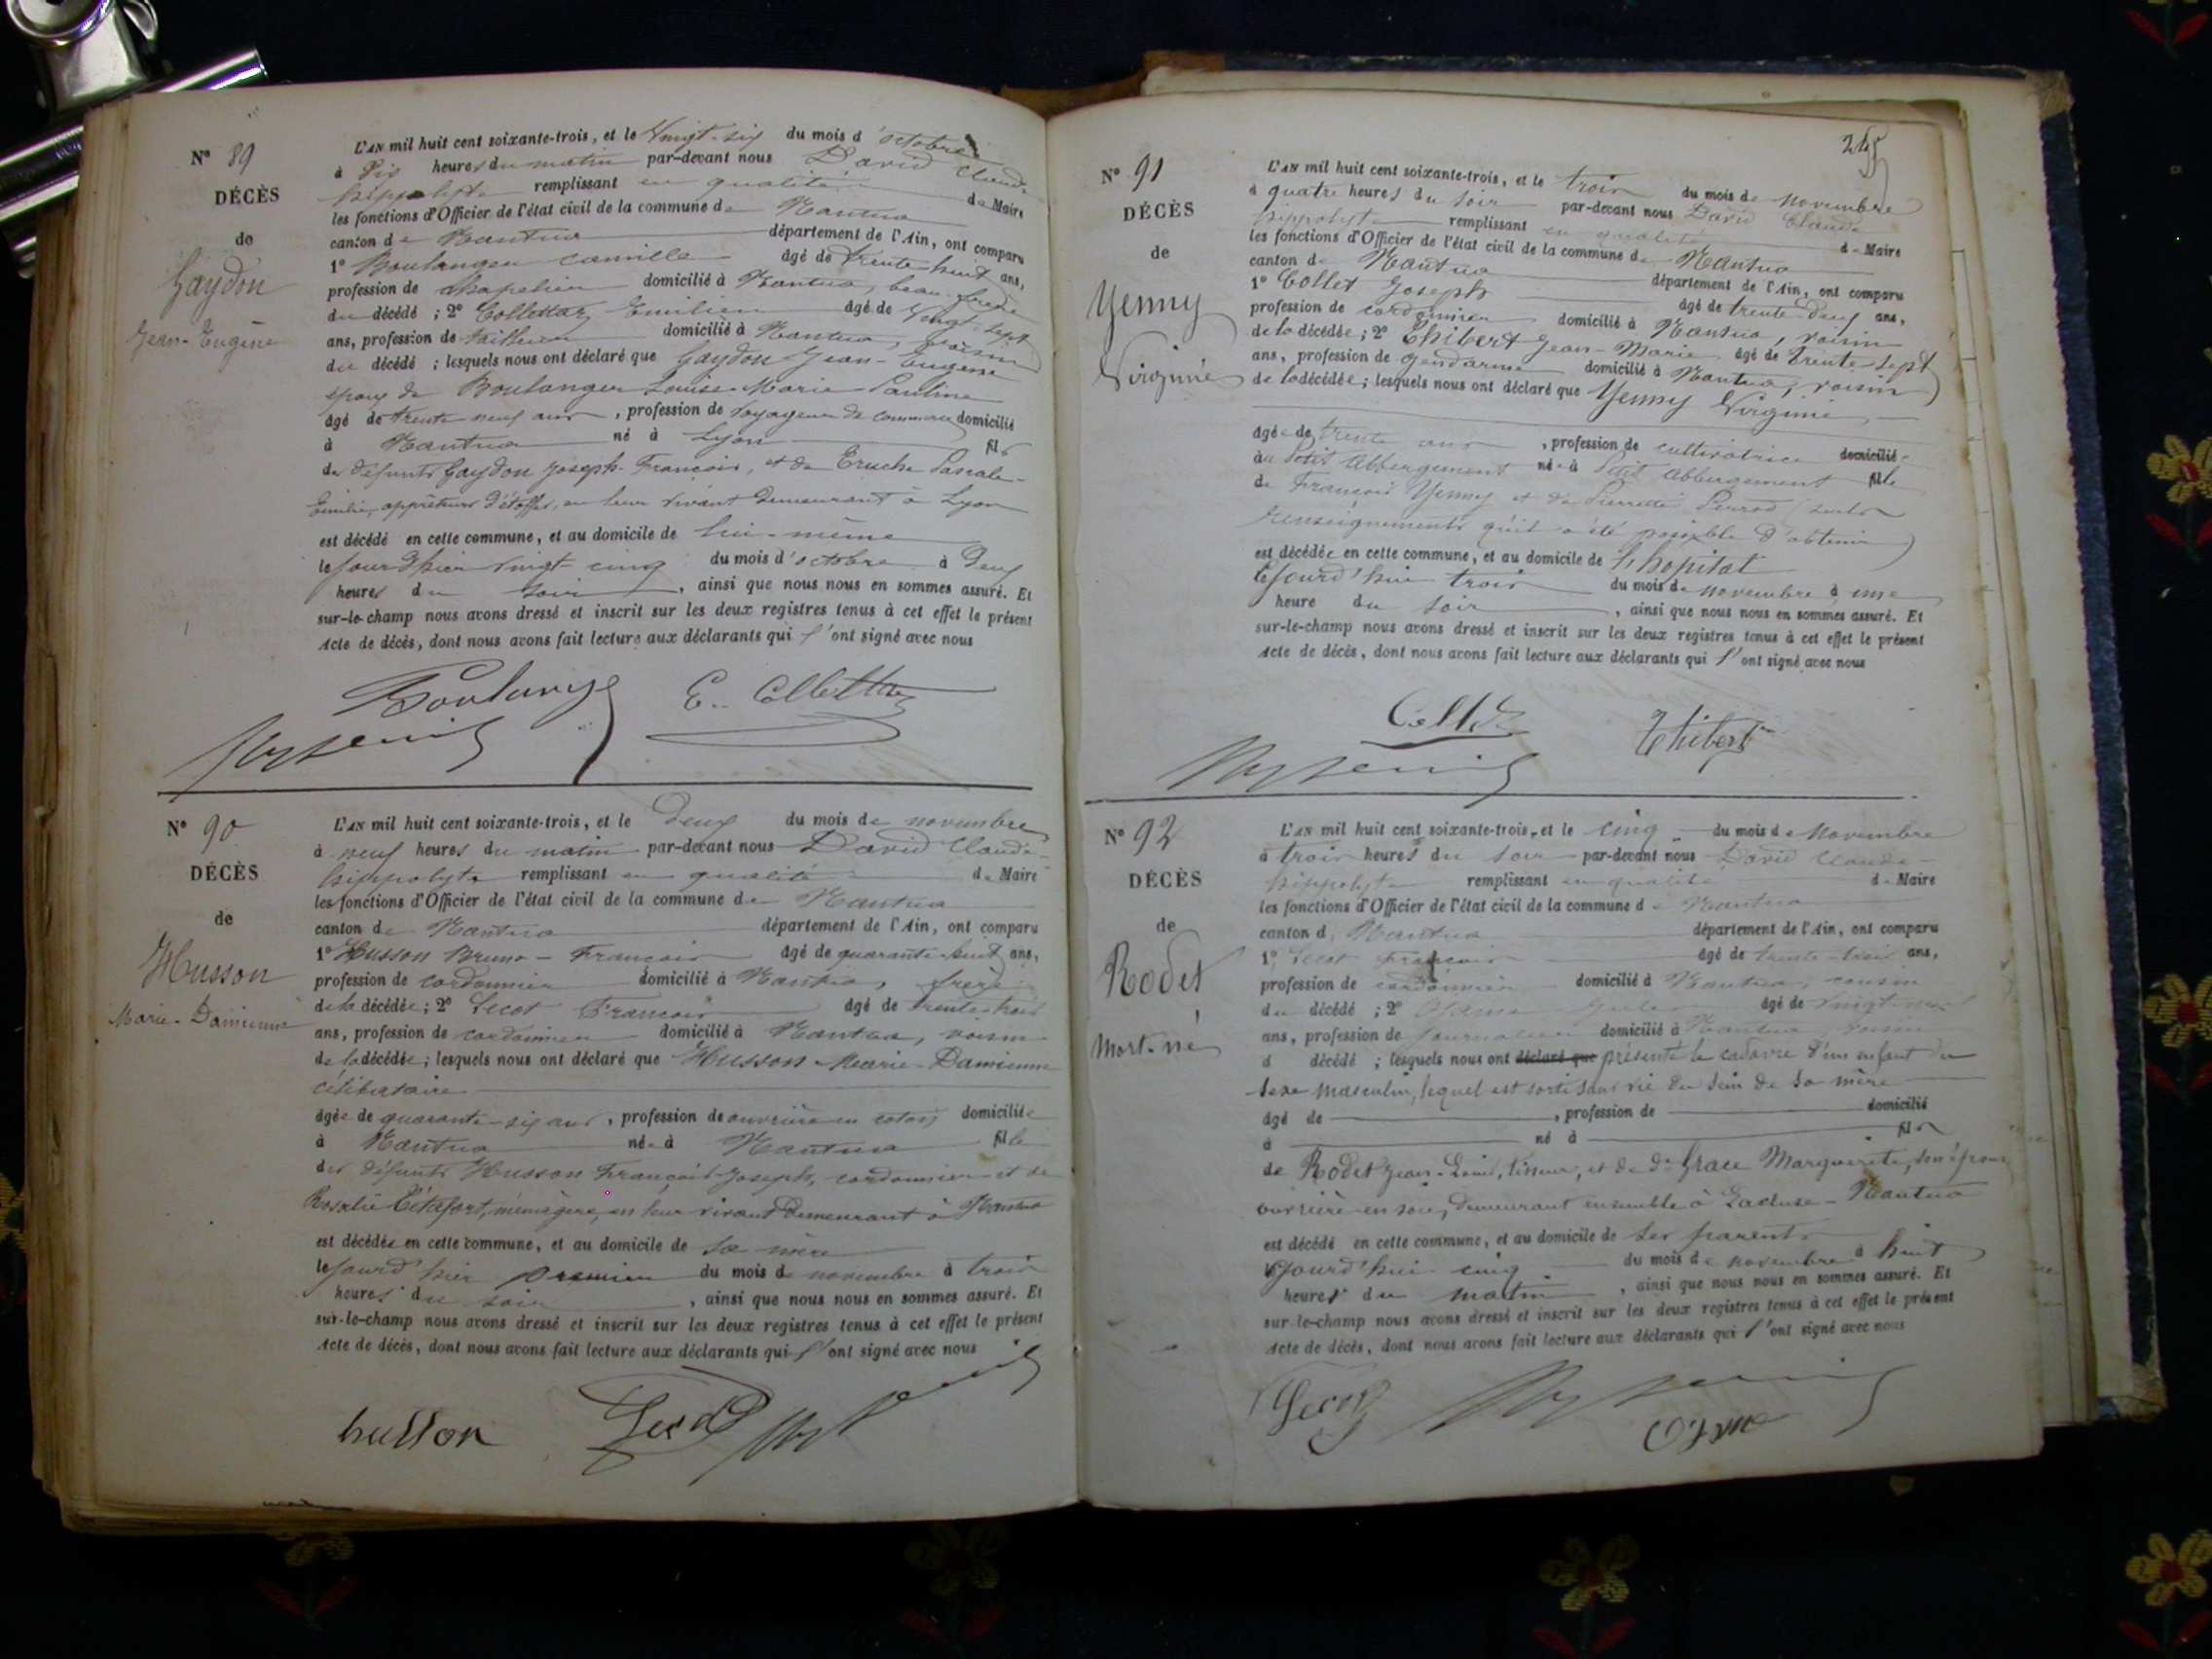 Nº 89
DÉCÈS
de
Gaydon
Jean-Eugène
L'AN mil huit cent soixante-trois, et le Vingt-six du mois d'octobre
à dix heures du matin par-devant nous David Claude
hippolyte remplissant en qualité de Maire
les fonctions d'Officier de l'état civil de la commune de Nantua
canton de Nantua département de l'Ain, ont comparu
1º Boulanger Camille âgé de trente-huit ans,
profession de chapelier domicilié à Nantua, beau-frère
du décédé ; 2º Collettaz Emilien âgé de vingt-sept
ans, profession de tailleur domicilié à Nantua, voisin
du décédé ; lesquels nous ont déclaré que Gaydon Jean-Eugène
époux de Boulanger Louise-Marie-Pauline
âgé de trente neuf ans, profession de voyageur de commerce domicilié
à Nantua né à Lyon fils
des défunts Gaydon Joseph-François, et de Eruche Pascale-
Emilie, appreteurs d'étoffes, en leur vivant demeurant à Lyon
est décédé en cette commune, et au domicile de lui-même
le jour d'hier vingt cinq du mois d'octobre à deux
heures du soir, ainsi que nous nous en sommes assuré. Et
sur-le-champ nous avons dressé et inscrit sur les deux registres tenus à cet effet le présent
Acte de décès, dont nous avons fait lecture aux déclarants qui l'ont signé avec nous
Boulanger E. Collettaz
Nº 90
DÉCÈS
de
Husson
Marie-Damienne
L'AN mil huit cent soixante-trois, et le deux du mois de novembre
à neuf heures du matin par-devant nous David Claude-
hippolyte remplissant en qualité de Maire
les fonctions d'Officier de l'état civil de la commune de Nantua
canton de Nantua département de l'Ain, ont comparu
1º Husson Bruno-François âgé de quarante-huit ans,
profession de cordonnier domicilié à Nantua, frère
de la décédée ; 2º Secot François âgé de trente-trois
ans, profession de cordonnier domicilié à Nantua, voisin
de la décédée ; lesquels nous ont déclaré que Husson Marie-Damienne
célibataire
âgée de quarante-six ans, profession de ouvrière en coton domiciliée
à Nantua née à Nantua fille
des défunts Husson François Joseph, cordonnier et de
Rosalie Tétafort, ménagère, en leur vivant demeurant à Nantua
est décédée en cette commune, et au domicile de sa mère
le jour d'hier premier du mois de novembre à trois
heures du soir, ainsi que nous nous en sommes assuré. Et
sur-le-champ nous avons dressé et inscrit sur les deux registres tenus à cet effet le présent
Acte de décès, dont nous avons fait lecture aux déclarants qui l'ont signé avec nous
husson Secot
245
Nº 91
DÉCÈS
de
Yenny
Virginie
L'AN mil huit cent soixante-trois, et le trois du mois de novembre
à quatre heures du soir par-devant nous David Claude
hippolyte remplissant en qualité de Maire
les fonctions d'Officier de l'état civil de la commune de Nantua
canton de Nantua département de l'Ain, ont comparu
1º Collet Joseph âgé de trente-deux ans,
profession de cordonnier domicilié à Nantua, voisin
de la décédée ; 2º Thibert Jean-Marie âgé de trente-sept
ans, profession de gendarme domicilié à Nantua, voisin
de la décédée ; lesquels nous ont déclaré que Yenny Virginie
âgée de trente ans, profession de cultivatrice domiciliée
au Petit Abbergement née à Petit Abbergement fille
de François Yenny et de Pierrette Perrod (seuls
renseignements qu'il a été possible d'obtenir)
est décédée en cette commune, et au domicile de l'hopital
le jourd'hui trois du mois de novembre à une
heure du soir, ainsi que nous nous en sommes assuré. Et
sur-le-champ nous avons dressé et inscrit sur les deux registres tenus à cet effet le présent
Acte de décès, dont nous avons fait lecture aux déclarants qui l'ont signé avec nous
Collet Thibert
Nº 92
DÉCÈS
de
Rodet
Mort-né
L'AN mil huit cent soixante-trois, et le cinq du mois de novembre
à trois heures du soir par-devant nous David Claude-
hippolyte remplissant en qualité de Maire
les fonctions d'Officier de l'état civil de la commune de Nantua
canton d Nantua département de l'Ain, ont comparu
1º Secot François âgé de trente-trois ans,
profession de cordonnier domicilié à Nantua, cousin
du décédé ; 2º Jules âgé de vingt-neuf
ans, profession de journalier domicilié à Nantua, voisin
d décédé ; lesquels nous ont déclaré que présenté le cadavre d'un enfant du
sexe masculin, lequel est sorti sans vie du sein de sa mère
âgé de , profession de domicilié
à né à fils
de Rodet Jean-Louis, tisseur, et de de Grace Marguerite, son épouse
ouvrière en soie, demeurant ensemble à Lacluse-Nantua
est décédé en cette commune, et au domicile de ses parents
le jourd'hui cinq du mois de novembre à huit
heures du matin, ainsi que nous nous en sommes assuré. Et
sur-le-champ nous avons dressé et inscrit sur les deux registres tenus à cet effet le présent
Acte de décès, dont nous avons fait lecture aux déclarants qui l'ont signé avec nous
Secot